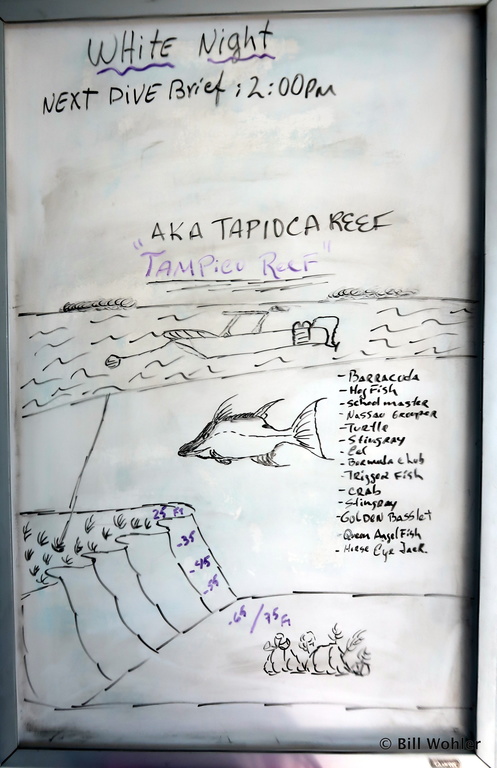 WHite Night
NEXT DiVE Brief ; 2:00PM
AKA TAPIOCA REEF
"TAMPICO REEF"
- BARRACUDA
- Hog Fish
- School master
- Nassau Grouper
- Turtle
- Stingray
- Eel
- Bermuda chub
- Trigger Fish
- CRAB
- Stingray
- GOLDEN BASSLET
- Queen Angel Fish
- Horse Eye Jack
25 FT
-35
-45
-55
-65/75 Ft
© Bill Wohler